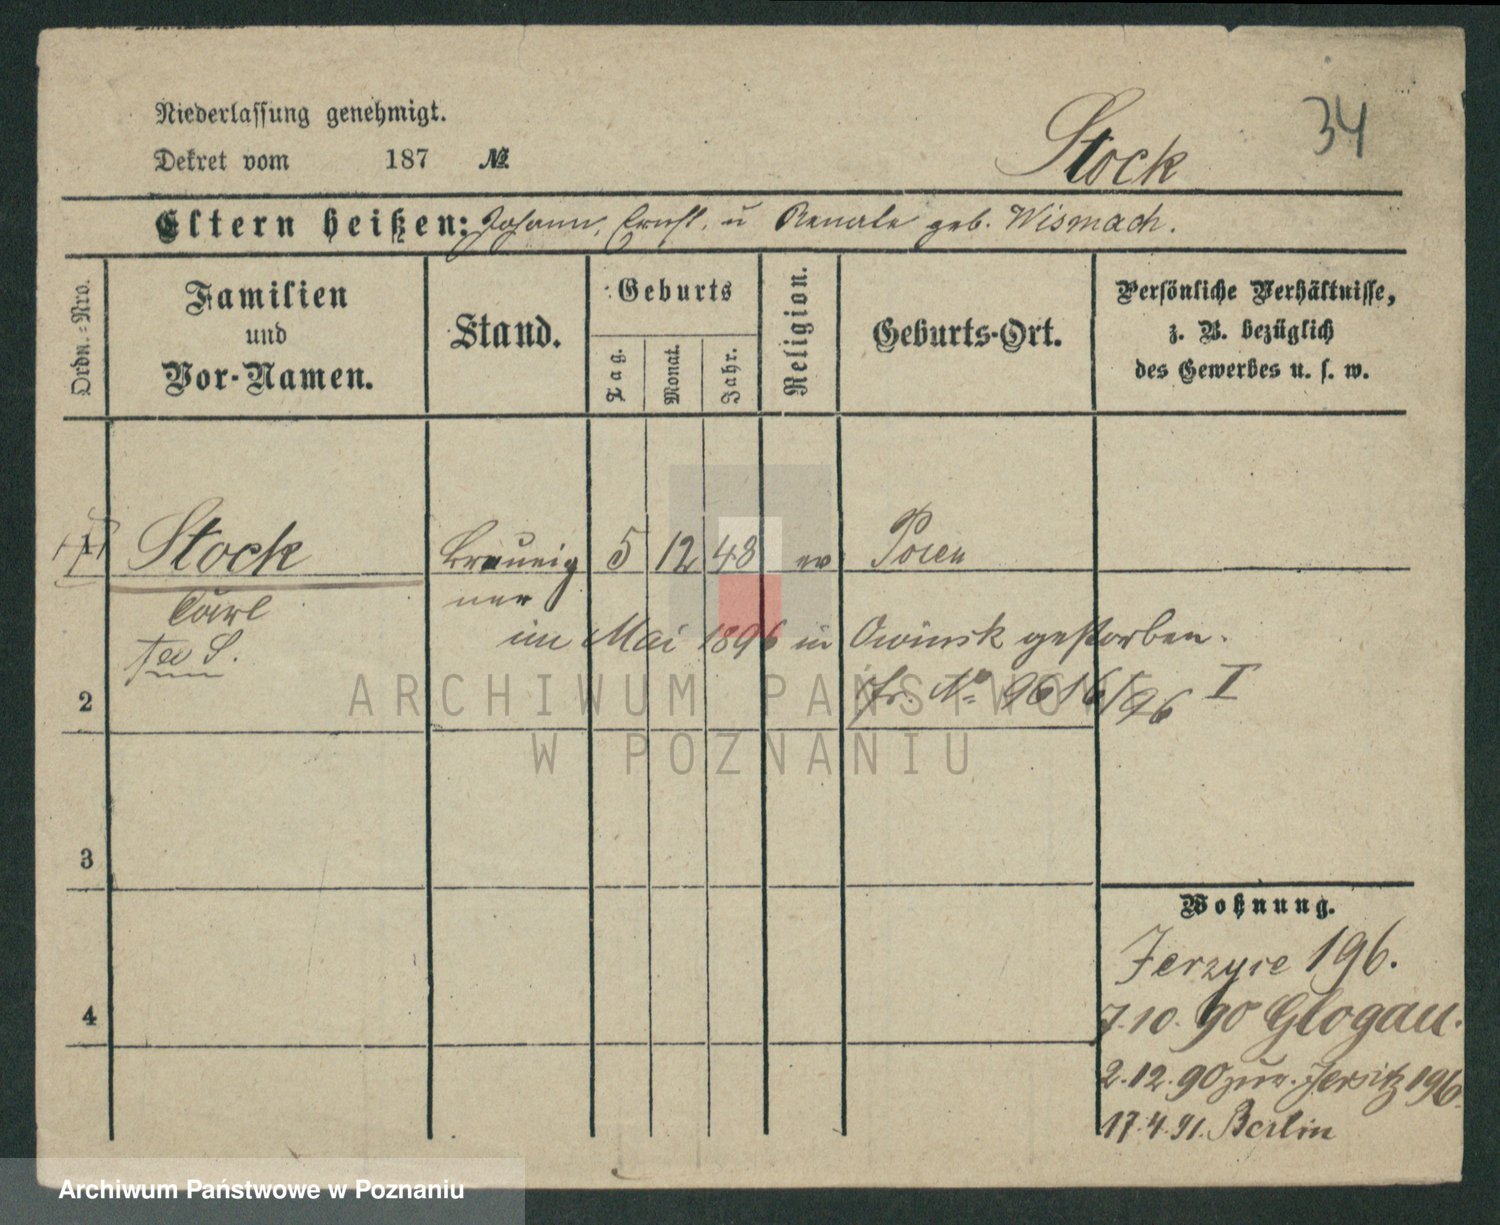 Niederlassung genehmigt.
Dekret vom 187 №
Stock
34
Eltern heißen: Johann, Ernst, u Renate geb. Wismach.
Ordn.-Nro.
Familien
und
Vor-Namen.
Stand.
Geburts
Tag.
Monat.
Jahr.
Religion.
Geburts-Ort.
Persönliche Verhältnisse,
z. B. bezüglich
des Gewerbes u. s. w.
1 Stock 5 12 48 ev Posen
Carl
im Mai 1896 in Owinsk gestorben.
№ 9616/96 I
2
3
4
Wohnung.
Jerzyce 196.
7.10.90 Glogau.
2.12.90 zur. Jersitz 196.
17.4.91. Berlin
ARCHIWUM PAŃSTWOWE
W POZNANIU
Archiwum Państwowe w Poznaniu